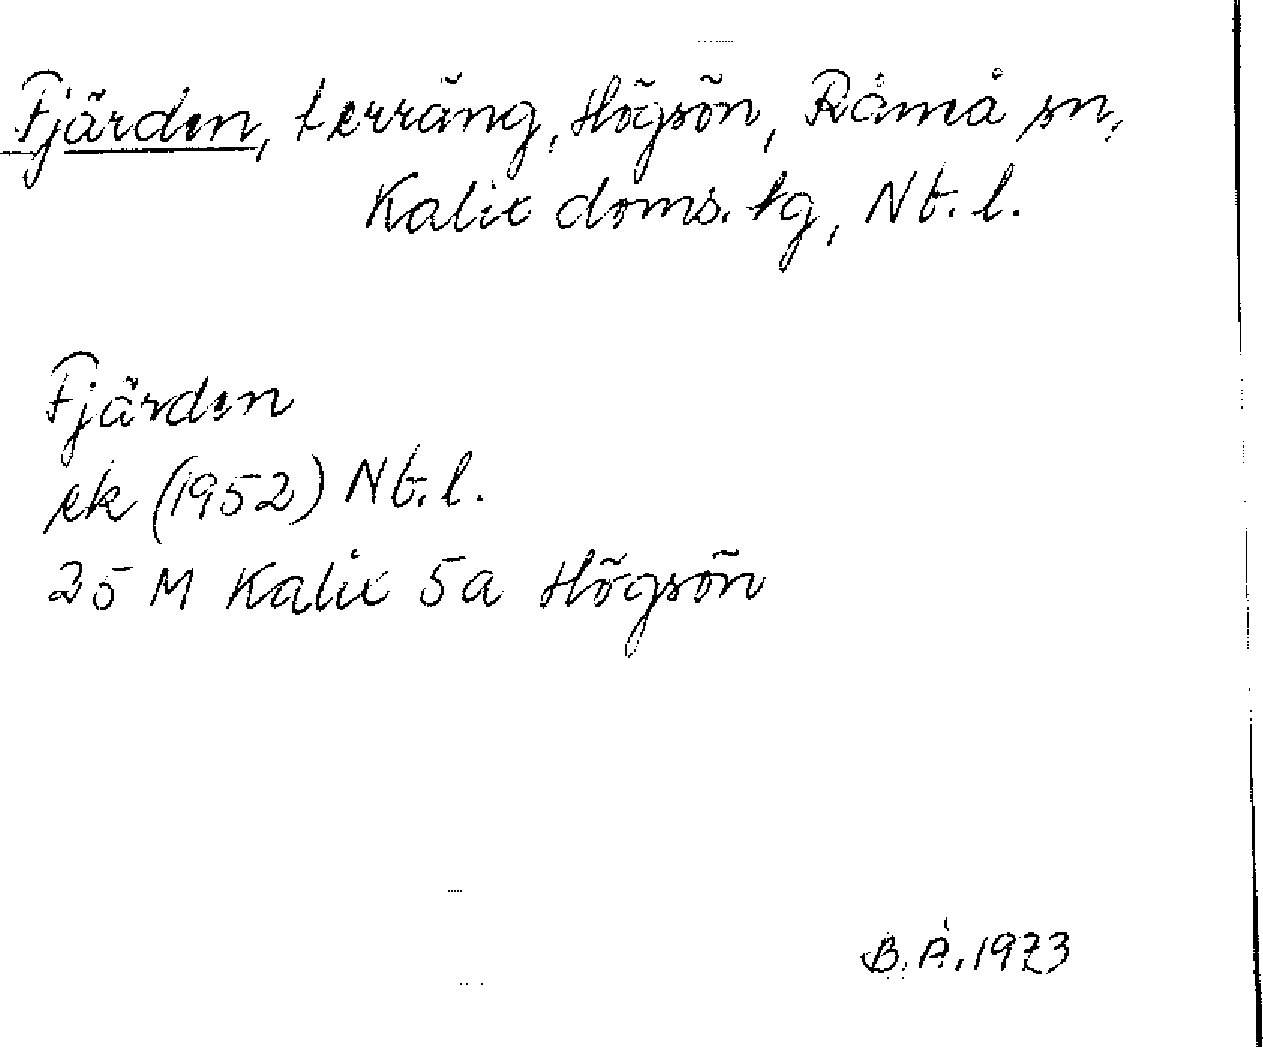 Fjärden, terräng, Högsön, Råneå sn,
Kalix doms. tg, Nb. l.
Fjärden
ek (1952) Nb. l.
25 M Kalix 5a Högsön
B. Å. 1973